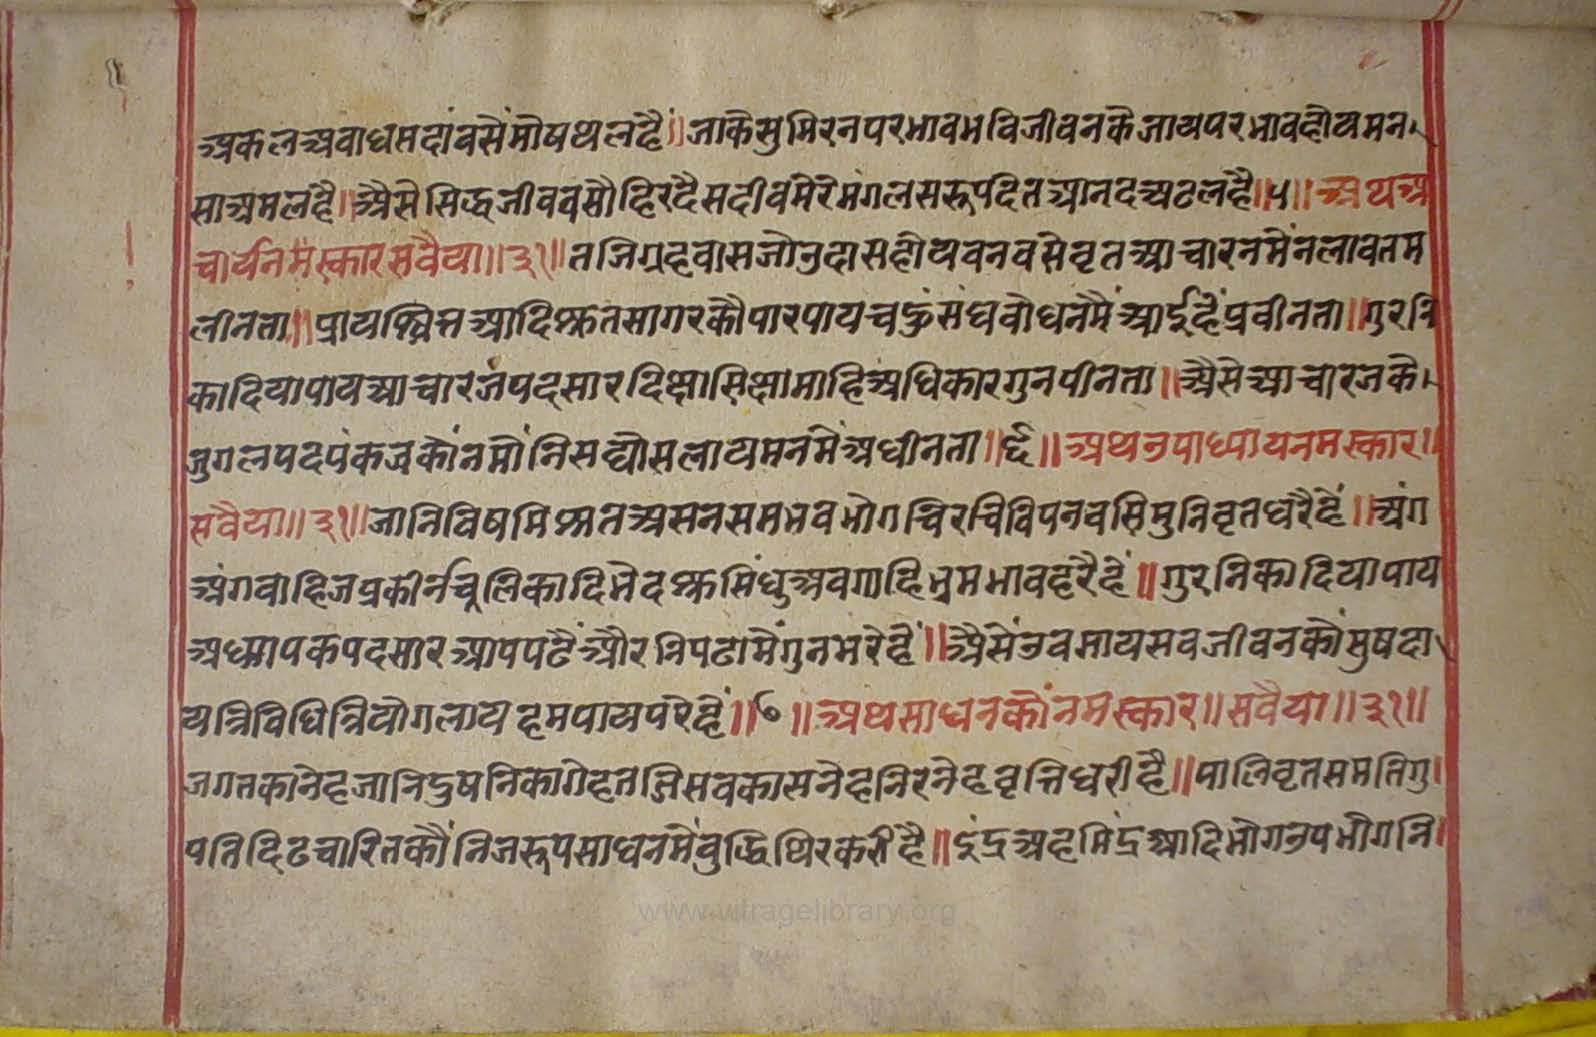 अकलअवाधसदांवसैंमोषथलहैं॥जाकैसुमिरनपरभावभविजीवनकैजायपरभावहोयमन
साअमलहै॥अैसेसिद्धजीववसौहिरदैसदीवमेरेमंगलसरूपदितआनदअटलहै॥५॥अथअ
चार्यनमस्कारसवैया॥३१॥तजिग्रहवासजोउदासहोयवनवसेवृतआचारनमेंनलावतम
लीनता॥प्रायश्चित्तआदिश्रुतसागरकौपारपायचहुंसंघवोधनमैंआईहैंप्रवीनता॥गुरनि
कादियापायआचारजपदसारदिक्षासिक्षामाहिअधिकारगुनपीनता॥अैसेआचारजकै
जुगलपदपंकजकोंनमोंनिसद्योसलायमनमेंअधीनता॥६॥अथउपाध्यायनमस्कार॥
सवैया॥३१॥जानिविषमिश्रतअसनसमभवभोगचिरचिविपनवसिमुनिवृतधरैहैं॥अंग
अंगवाहिजप्रकीर्नचूलिकादिभेदश्रुसिंधुअवगाहिभ्रमभावहरैहैं॥गुरनिकादियापाय
अध्यापकपदसारआपपढैंऔरनिपढामैंगुनभरेहैं॥अैसेंउवझायसवजीवनकोंसुषदा
यत्रिविधित्रियोगलायहमपायपरेहैं॥७॥अथसाधनकोंनमस्कार॥सवैया॥३१॥
जगतकानेहजानिदुषनिकागेहतजिसवकासनेहनिरनेहवृत्तिधरीहै॥पालिवृतसमतिगु
पतिदिढचारितकौंनिजरूपसाधनमेंवुद्धिथिरकरीहै॥इंद्रअहमिंद्रआदिभोगउपभोगनि
www.vitragelibrary.org